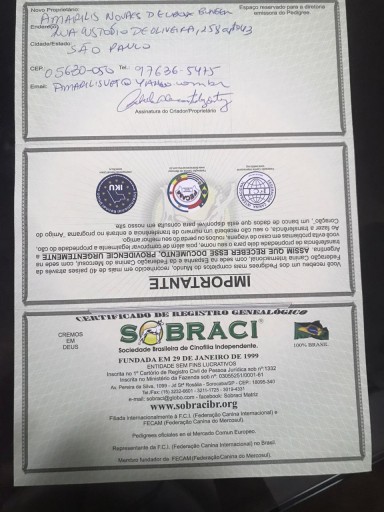 Novo Proprietário:
Espaço reservado para a diretoria
emissora do Pedigree.
AMARILIS NOVAES
Endereço:
RUA CUSTÓDIO DE OLIVEIRA, 258
Cidade/Estado:
SÃO PAULO
CEP 05630-050 Tel. 97636-5475
Email:
Assinatura do Criador/Proprietário
IKU
IMPORTANTE
Você recebeu um dos Pedigrees mais completos do Mundo, reconhecido em mais de 40 países através da
Federação Canina Internacional, com sede na Espanha e da Federação Canina do Mercosul, com sede na
Argentina. ASSIM QUE RECEBER ESSE DOCUMENTO, PROVIDENCIE URGENTEMENTE a
transferência de propriedade dele para o seu nome, pois além de comprovar legalmente a propriedade do cão,
você evita problemas em caso de viagens, roubos ou perda do seu melhor amigo.
Ao fazer a transferência, o seu cão receberá um número de transferência e entrará no programa "Amigo do
Coração", um banco de dados que está disponível para consulta em nosso site
CERTIFICADO DE REGISTRO GENEALÓGICO
CREMOS
EM
DEUS
SOBRACI
100% BRASIL
Sociedade Brasileira de Cinofilia Independente.
FUNDADA EM 29 DE JANEIRO DE 1999
ENTIDADE SEM FINS LUCRATIVOS
Inscrita no 1º Cartório de Registro Civil de Pessoa Jurídica sob nº:1332
Inscrita no Ministério da Fazenda sob nº: 03065251/0001-61
Av. Pereira da Silva, 1099 - Jd Stª Rosália - Sorocaba/SP - CEP: 18095-340
e-mail: sobraci@globo.com - facebook: Sobraci Matriz
www.sobracibr.org
Filiada internacionalmente á F.C.I. (Federação Canina Internacional) e
FECAM (Federação Canina do Mercosul).
Pedigrees oficiais no el Mercado Comun Europeo.
Representante da F.C.I. (Federação Canina Internacional) no Brasil.
Membro fundador da FECAM(Federação Canina do Mercosul).